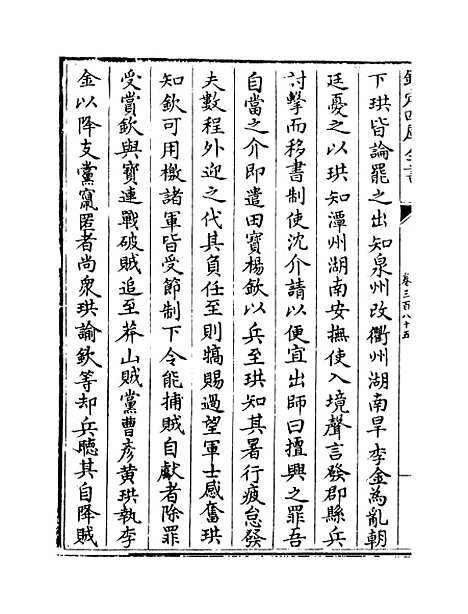 欽定四庫全書
卷三百八十五
下珙皆論罷之出知泉州改衢州湖南旱李金為亂朝
廷憂之以珙知潭州湖南安撫使入境聲言發郡縣兵
討擊而移書制使沈介請以便宜出師曰擅興之罪吾
自當之介即遣田寶楊欽以兵至珙知其暑行疲怠發
夫數程外迎之代其負任至則犒賜過望軍士感奮珙
知欽可用檄諸軍皆受節制下令能捕賊自獻者除罪
受賞欽與寶連戰破賊追至莽山賊黨曹彥黃珙執李
金以降支黨竄匿者尚衆珙諭欽等却兵聽其自降賊